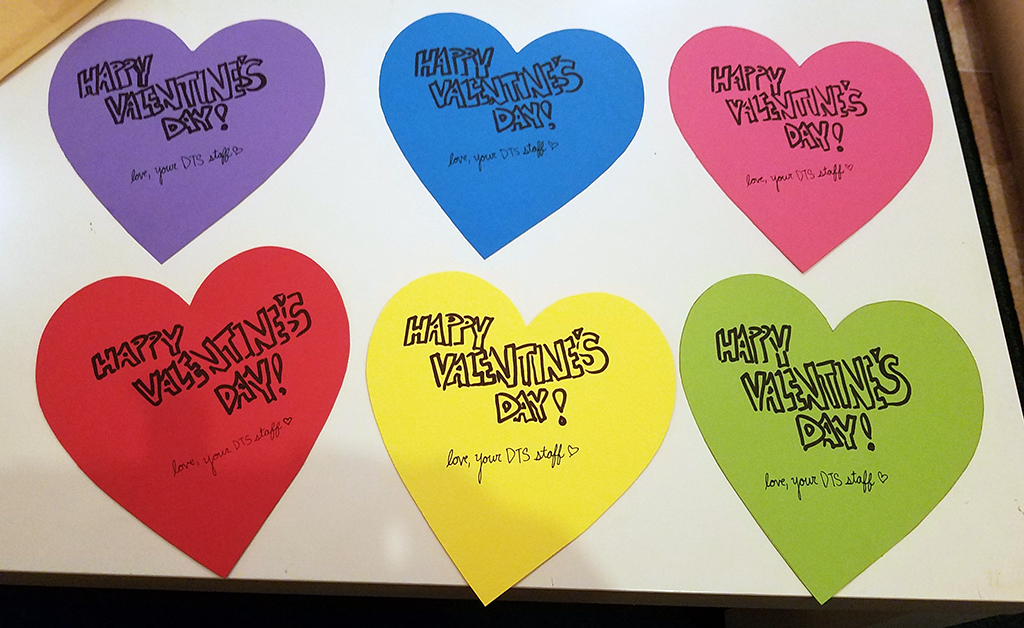 HAPPY
VALENTINE'S
DAY!
love, your DTS staff ♡
HAPPY
VALENTINE'S
DAY!
love, your DTS staff ♡
HAPPY
VALENTINE'S
DAY!
love, your DTS staff ♡
HAPPY
VALENTINE'S
DAY!
love, your DTS staff ♡
HAPPY
VALENTINE'S
DAY!
love, your DTS staff ♡
HAPPY
VALENTINE'S
DAY!
love, your DTS staff ♡